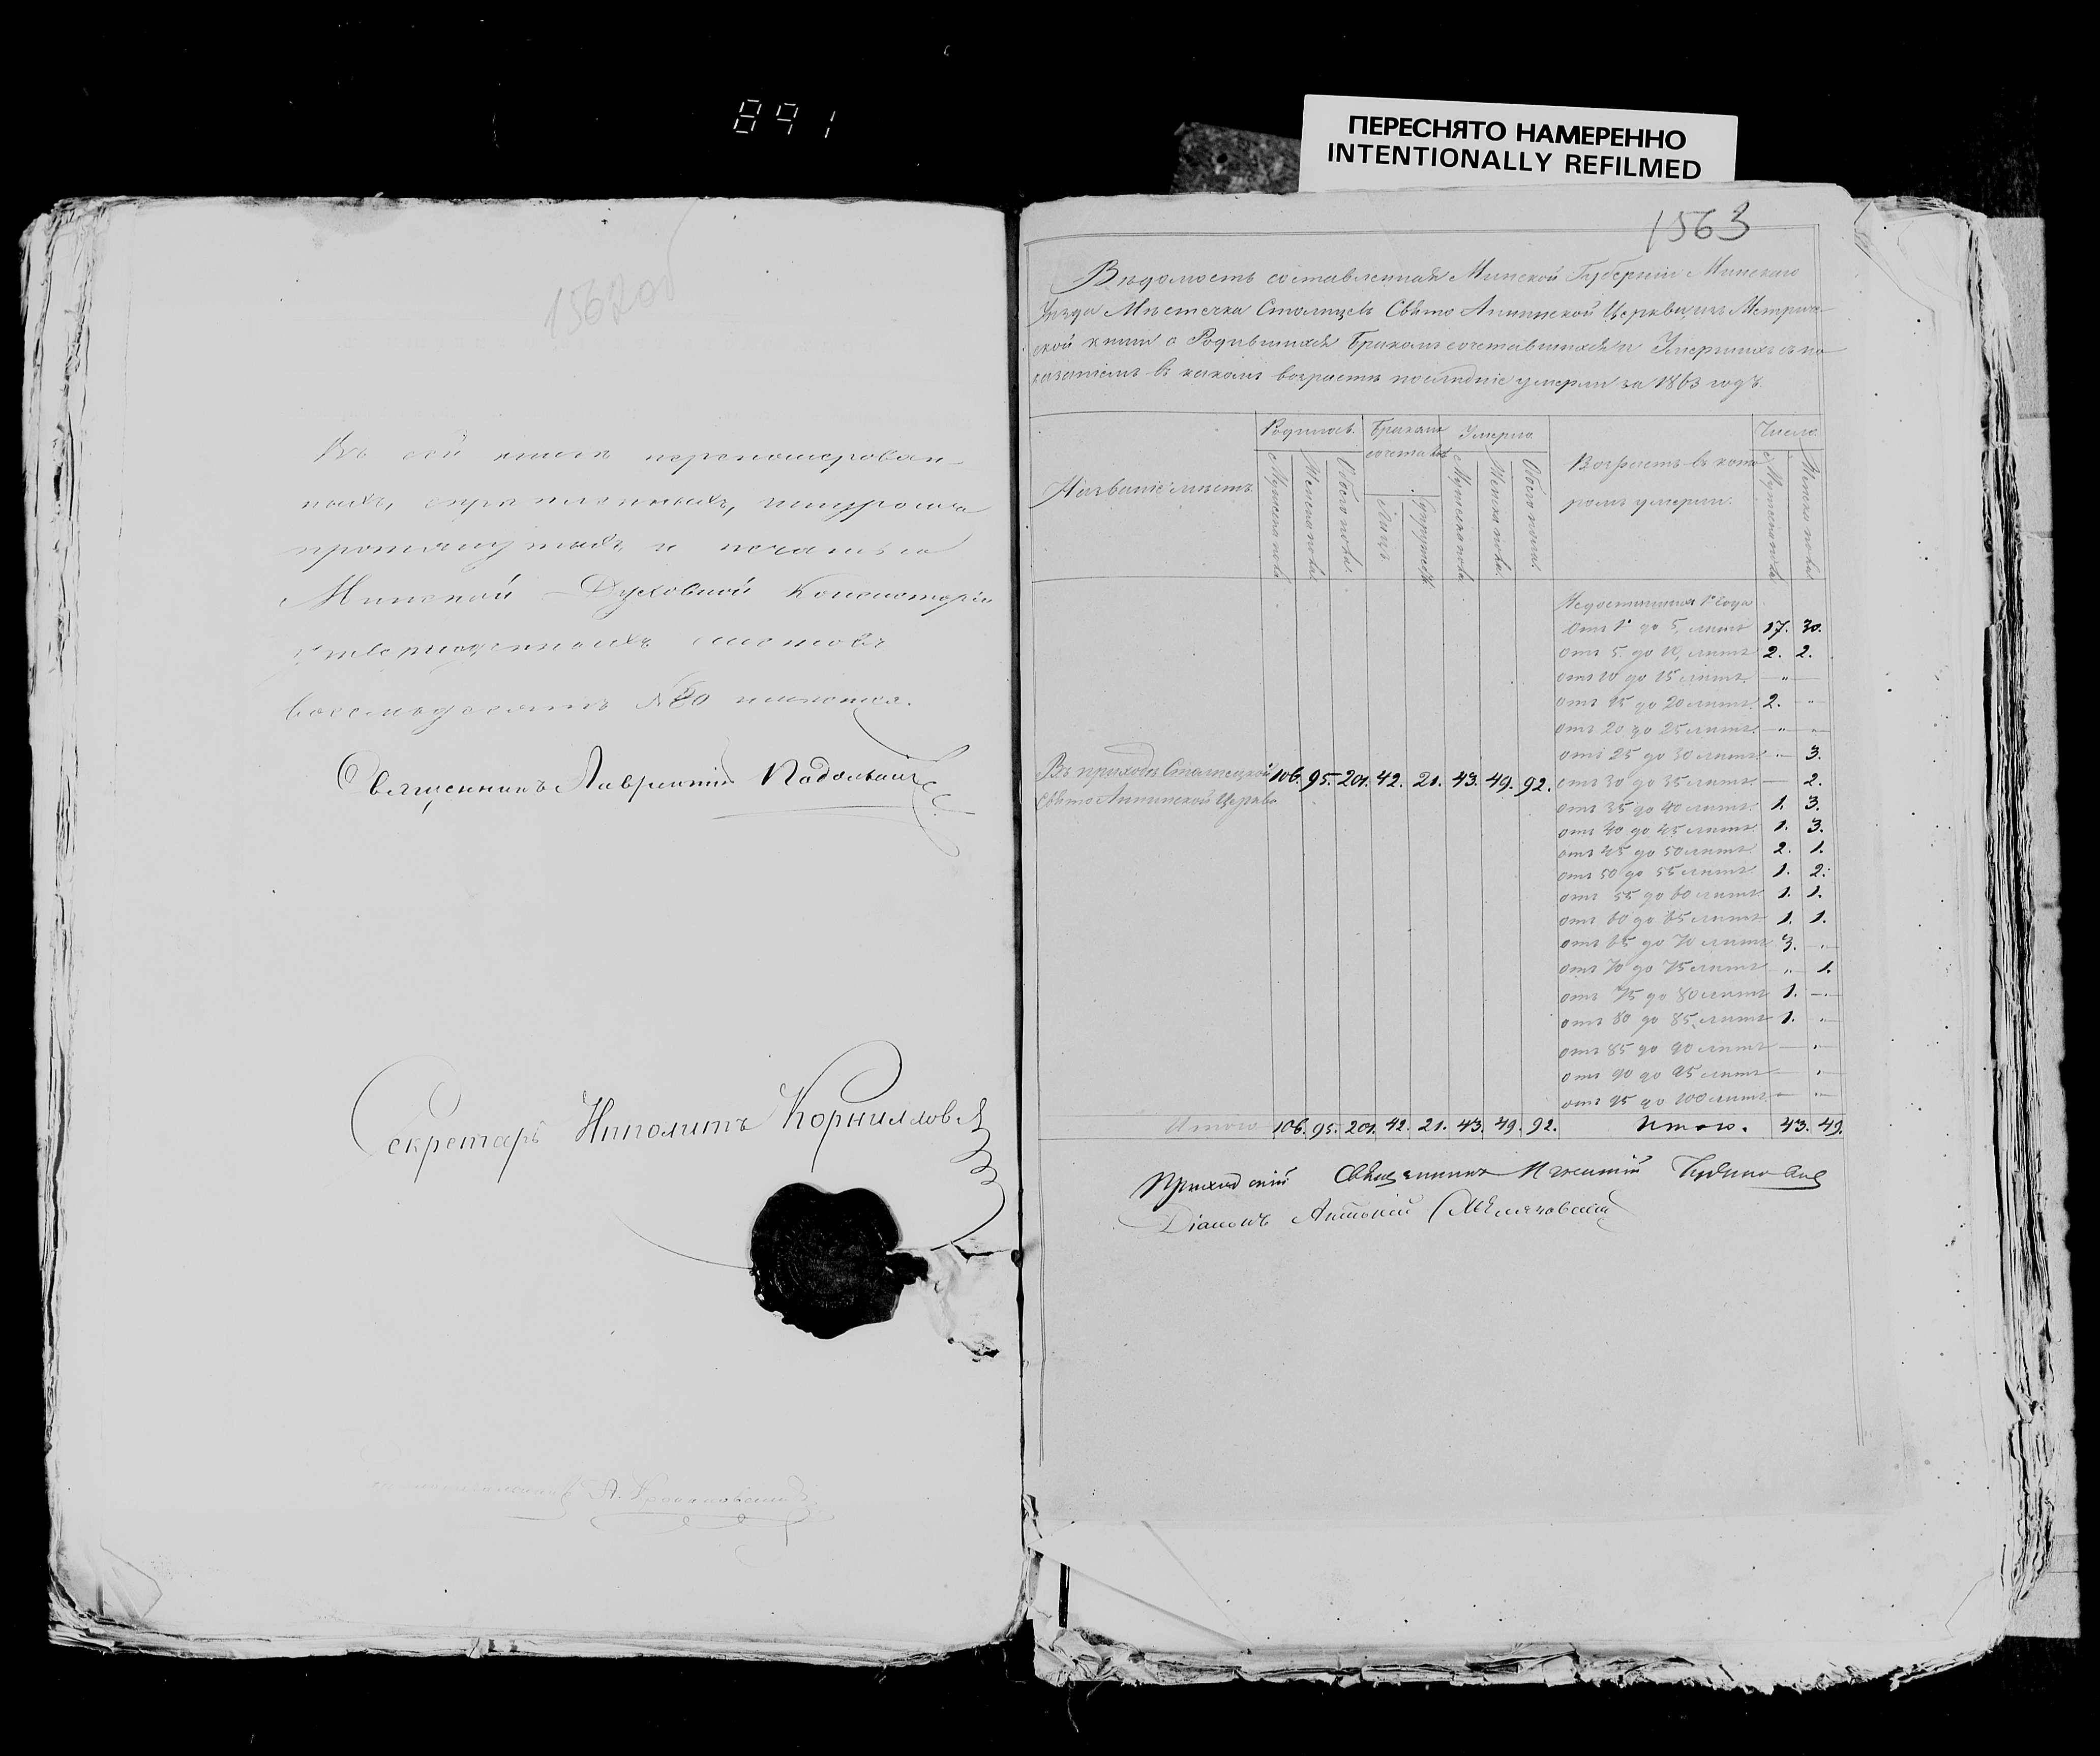 891
ПЕРЕСНЯТО НАМЕРЕННО
INTENTIONALLY REFILMED
1562об
Въ сей книгѣ перенумерован-
ныхъ, скрѣпленныхъ, шнуромъ
протянутыхъ и печатью
Минской Духовной Консисторіи
утвержденныхъ листовъ
восемьдесятъ №80 имѣется.
Священникъ Лаврентій Подольскій
Секретарь Ипполитъ Корниловъ
1563
Вѣдомость составленная Минской Губерніи Минскаго
Уѣзда Мѣстечка Столпцевъ Свято Аннинской Церкви изъ Метриче-
ской книги о Родившихся Бракомъ сочетавшихся и Умершихъ съ по-
казаніемъ въ какомъ возрастѣ послѣдніе умерли за 1863 годъ.
Названіе мѣстъ. Родилось. Бракомъ сочетались Умерло. Возрастъ въ кото-
ромъ умерли. Число
Мужеска пола Женска пола Обоего пола. Лицъ. Супружествъ. Мужеска пола Женска пола. Обоего пола. Мужеска пола Женска пола
Недостигшихъ 1 года
Отъ 1 до 5, лѣтъ 17. 30.
отъ 5. до 10, лѣтъ 2. 2.
отъ 10 до 15 лѣтъ. — " —
отъ 15 до 20 лѣтъ. 2. "
отъ 20 до 25 лѣтъ. — " —
отъ 25 до 30 лѣтъ. " 3.
Въ приходѣ Столпецкой
Свято Аннинской Церкви 106. 95. 201. 42. 21. 43. 49. 92.
отъ 30 до 35 лѣтъ. — 2.
отъ 35 до 40 лѣтъ. 1. 3.
отъ 40 до 45 лѣтъ. 1. 3.
отъ 45 до 50 лѣтъ. 2. 1.
отъ 50 до 55 лѣтъ. 1. 2.
отъ 55 до 60 лѣтъ 1. 1.
отъ 60 до 65 лѣтъ 1. 1.
отъ 65 до 70 лѣтъ 3. "
отъ 70 до 75 лѣтъ " 1.
отъ 75 до 80 лѣтъ 1. —
отъ 80 до 85, лѣтъ 1. "
отъ 85 до 90 лѣтъ — "
отъ 90 до 95 лѣтъ — "
отъ 95 до 100 лѣтъ — "
Итого 106. 95. 201. 42. 21. 43. 49. 92. Итого. 43. 49.
Приходскій Священникъ
Діаконъ Антоній